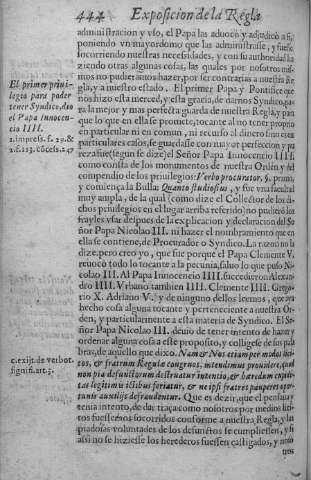 444 Exposicion de la Regla
administracion y vso, el Papa las aduocò y adjudicò a si,
poniendo vn mayordomo que las administrasse, y fuesse
socorriendo nuestras necessidades, y con su authoridad ha
ziendo otras algunas cosas, las quales por nosotros mis-
mos no pudieramos hazer, por ser contrarias a nuestra Re
gla, y a nuestro estado. El primer Papa y Pontifice que
nos hizo esta merced, y esta gracia, de darnos Syndico, pa-
ra la mayor y mas perfecta guarda de nuestra Regla, y pa-
que lo que en ella se promete, tocante al no tener proprio
en particular ni en comun, ni recurso al dinero sino en
particulares casos, se guardasse con mayor perfeccion y pu
reza fue (segun se dize) el Señor Papa Innocencio IIII.
como consta de los monumentos de nuestra Ordẽ y del
compendio de los priuilegios: Verbo procurator. §. primo,
y comiença la Bulla: Quanto studiosius, y fue vna facultad
muy ampla, de la qual (como dize el Collector de los di-
chos priuilegios en el lugar arriba referido) no pudieron los
frayles vsar despues de la explicacion y declaracion del Se
ñor Papa Nicolao III. ni hazer el nombramiento que en
ella se contiene, de Procurador o Syndico. La razon no la
dize, pero creo yo, que fue porque el Papa Clemente V.
reuocò todo lo tocante a la pecunia, saluo lo que puso Ni-
colao III. Al Papa Innocencio IIII. succedieron Alexan-
dro IIII. Vrbano tambien IIII. Clemente IIII. Grego-
rio X. Adriano V. y de ninguno dellos leemos, que aya
hecho cosa alguna tocante y perteneciente a nuestra Or-
den, y particularmente a esta materia de Syndico. El Se-
ñor Papa Nicolao III. deuio de tener intento de hazer y
ordenar alguna cosa a este proposito, y colligese de sus pala
bras, de aquello que dixo. Nam & Nos etiam per modos lici-
tos, & fratrum Regulæ congruos, intendimus prouidere, quod
non pia defunctorum destruatur intentio, & hæredum cupidi-
tas legitimis ictibus feriatur, & ne ipsi fratres pauperes opor-
tunis auxilijs defraudentur. Que es dezir, que el pensaua y
tenia intento, de dar traça como nosotros por medios lici-
tos fuessemos socorridos conforme a nuestra Regla, y las
piadosas voluntades de los defunctos se cumpliessen, y si
assi no se hiziesse los herederos fuessen castigados, y noso
tros
El primer priui-
legio para poder
tener Syndico, dio
el Papa Innocen-
cio IIII.
c. exijt. de verbor.
signifi. art. 3.